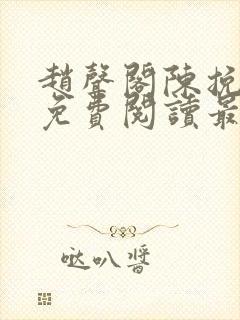 趙聲閣陳挽
免費閱讀最
哒叭醬